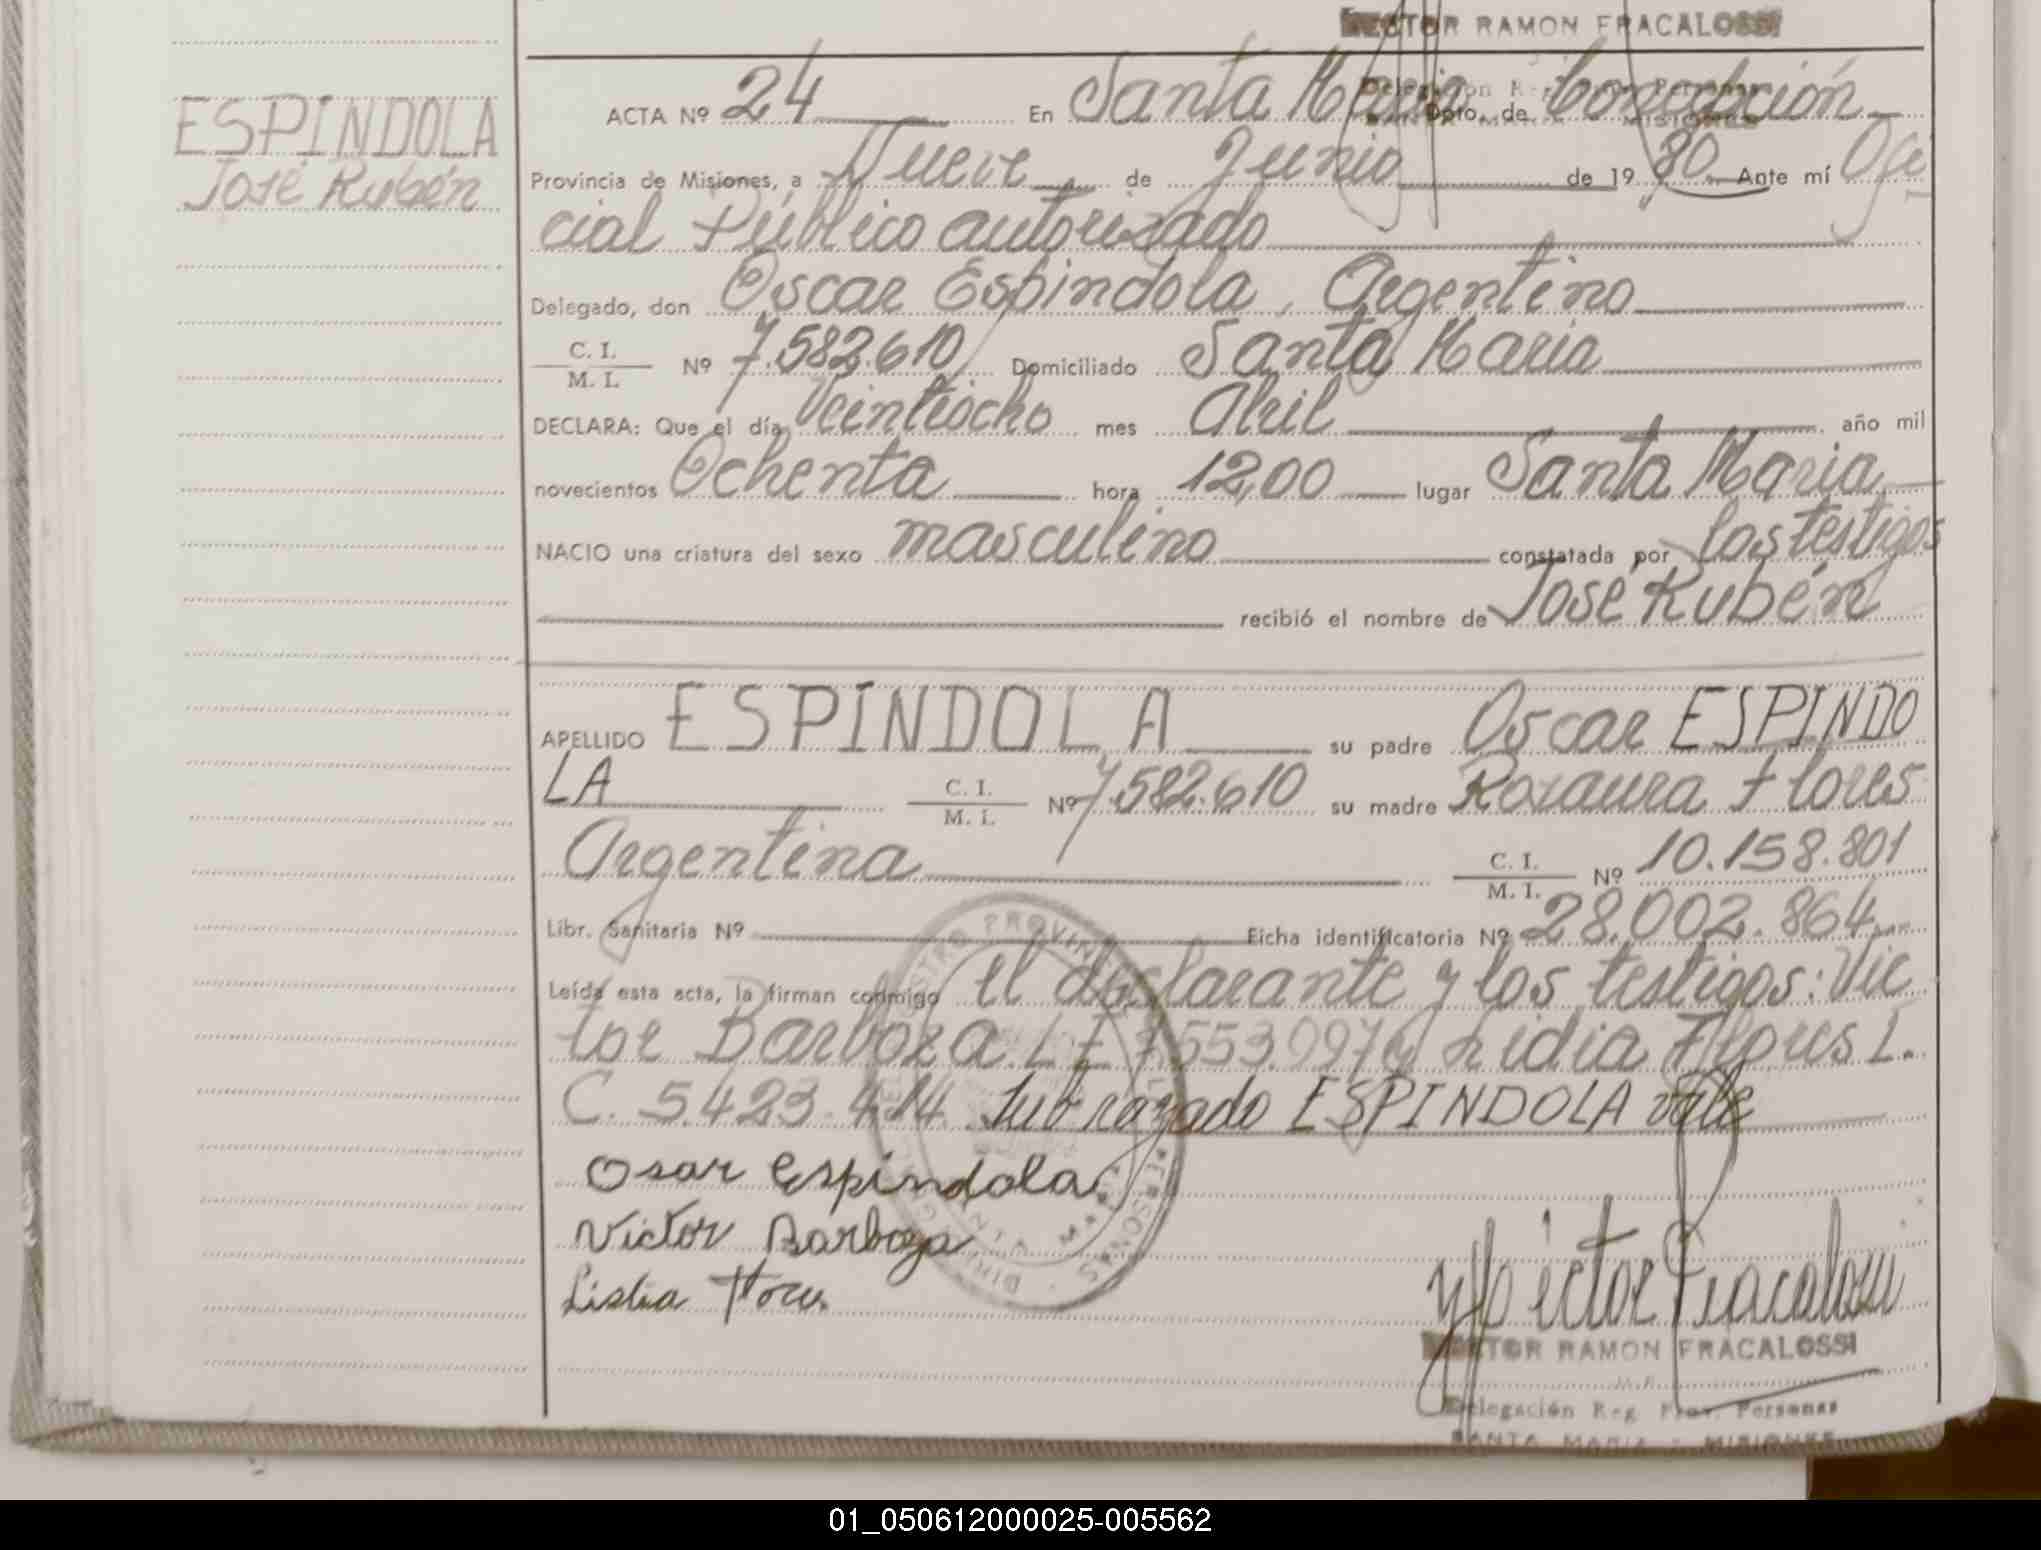 HECTOR RAMON FRACALOSSI
ESPINDOLA
José Rubén
ACTA Nº 24 En Santa María Dpto. de Concepción
Provincia de Misiones, a Nueve de Junio de 1980 Ante mí Ofi
cial Público autorizado
Delegado, don Oscar Espindola, Argentino
C. I.
M. I. Nº 7.582.610 Domiciliado Santa Maria
DECLARA: Que el día Veintiocho mes Abril año mil
novecientos Ochenta hora 12,00 lugar Santa Maria
NACIO una criatura del sexo masculino constatada por los testigos
recibió el nombre de José Rubén
APELLIDO ESPINDOLA su padre Oscar ESPINDO
LA C. I. M. I. Nº 7.582.610 su madre Rozaura Flores
Argentina C. I. M. I. Nº 10.158.801
Libr. Sanitaria Nº Ficha identificatoria Nº 28.002.864
Leída esta acta, la firman conmigo el declarante y los testigos: Vic
tor Barboza L E 7.553.097 y Lidia Flores L.
C. 5.423.414. Subrazado ESPINDOLA vale
Osar Espindola
Victor Barboza
Lidia Flores
Hector Fracalossi
HECTOR RAMON FRACALOSSI
Delegación Reg. Prov. Personas
SANTA MARIA - MISIONES
01_050612000025-005562